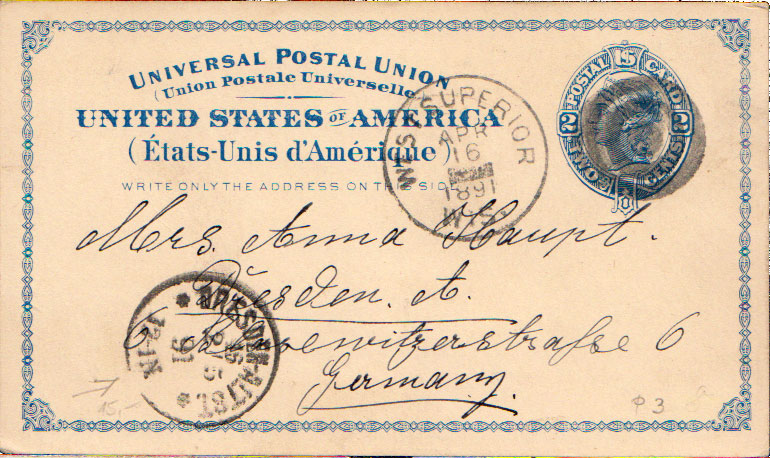 UNIVERSAL POSTAL UNION
(Union Postale Universelle)
UNITED STATES OF AMERICA
(États-Unis d'Amérique)
WRITE ONLY THE ADDRESS ON THIS SIDE
POSTAL CARD
U S
2 2
TWO CENTS
WEST SUPERIOR
APR
16
1891
WIS.
Mrs. Anna Haupt.
Dresden. A.
6 Blasewitzerstraße 6
Germany.
DRESDEN-ALTST.
91
P 3